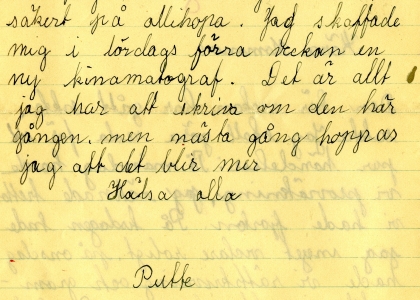 säkert på allihopa. Jag skaffade
mig i lördags förra veckan en
ny kinamatograf. Det är allt
jag har att skriva om den här
gången. men nästa gång hoppas
jag att det blir mer
Hälsa alla
Putte